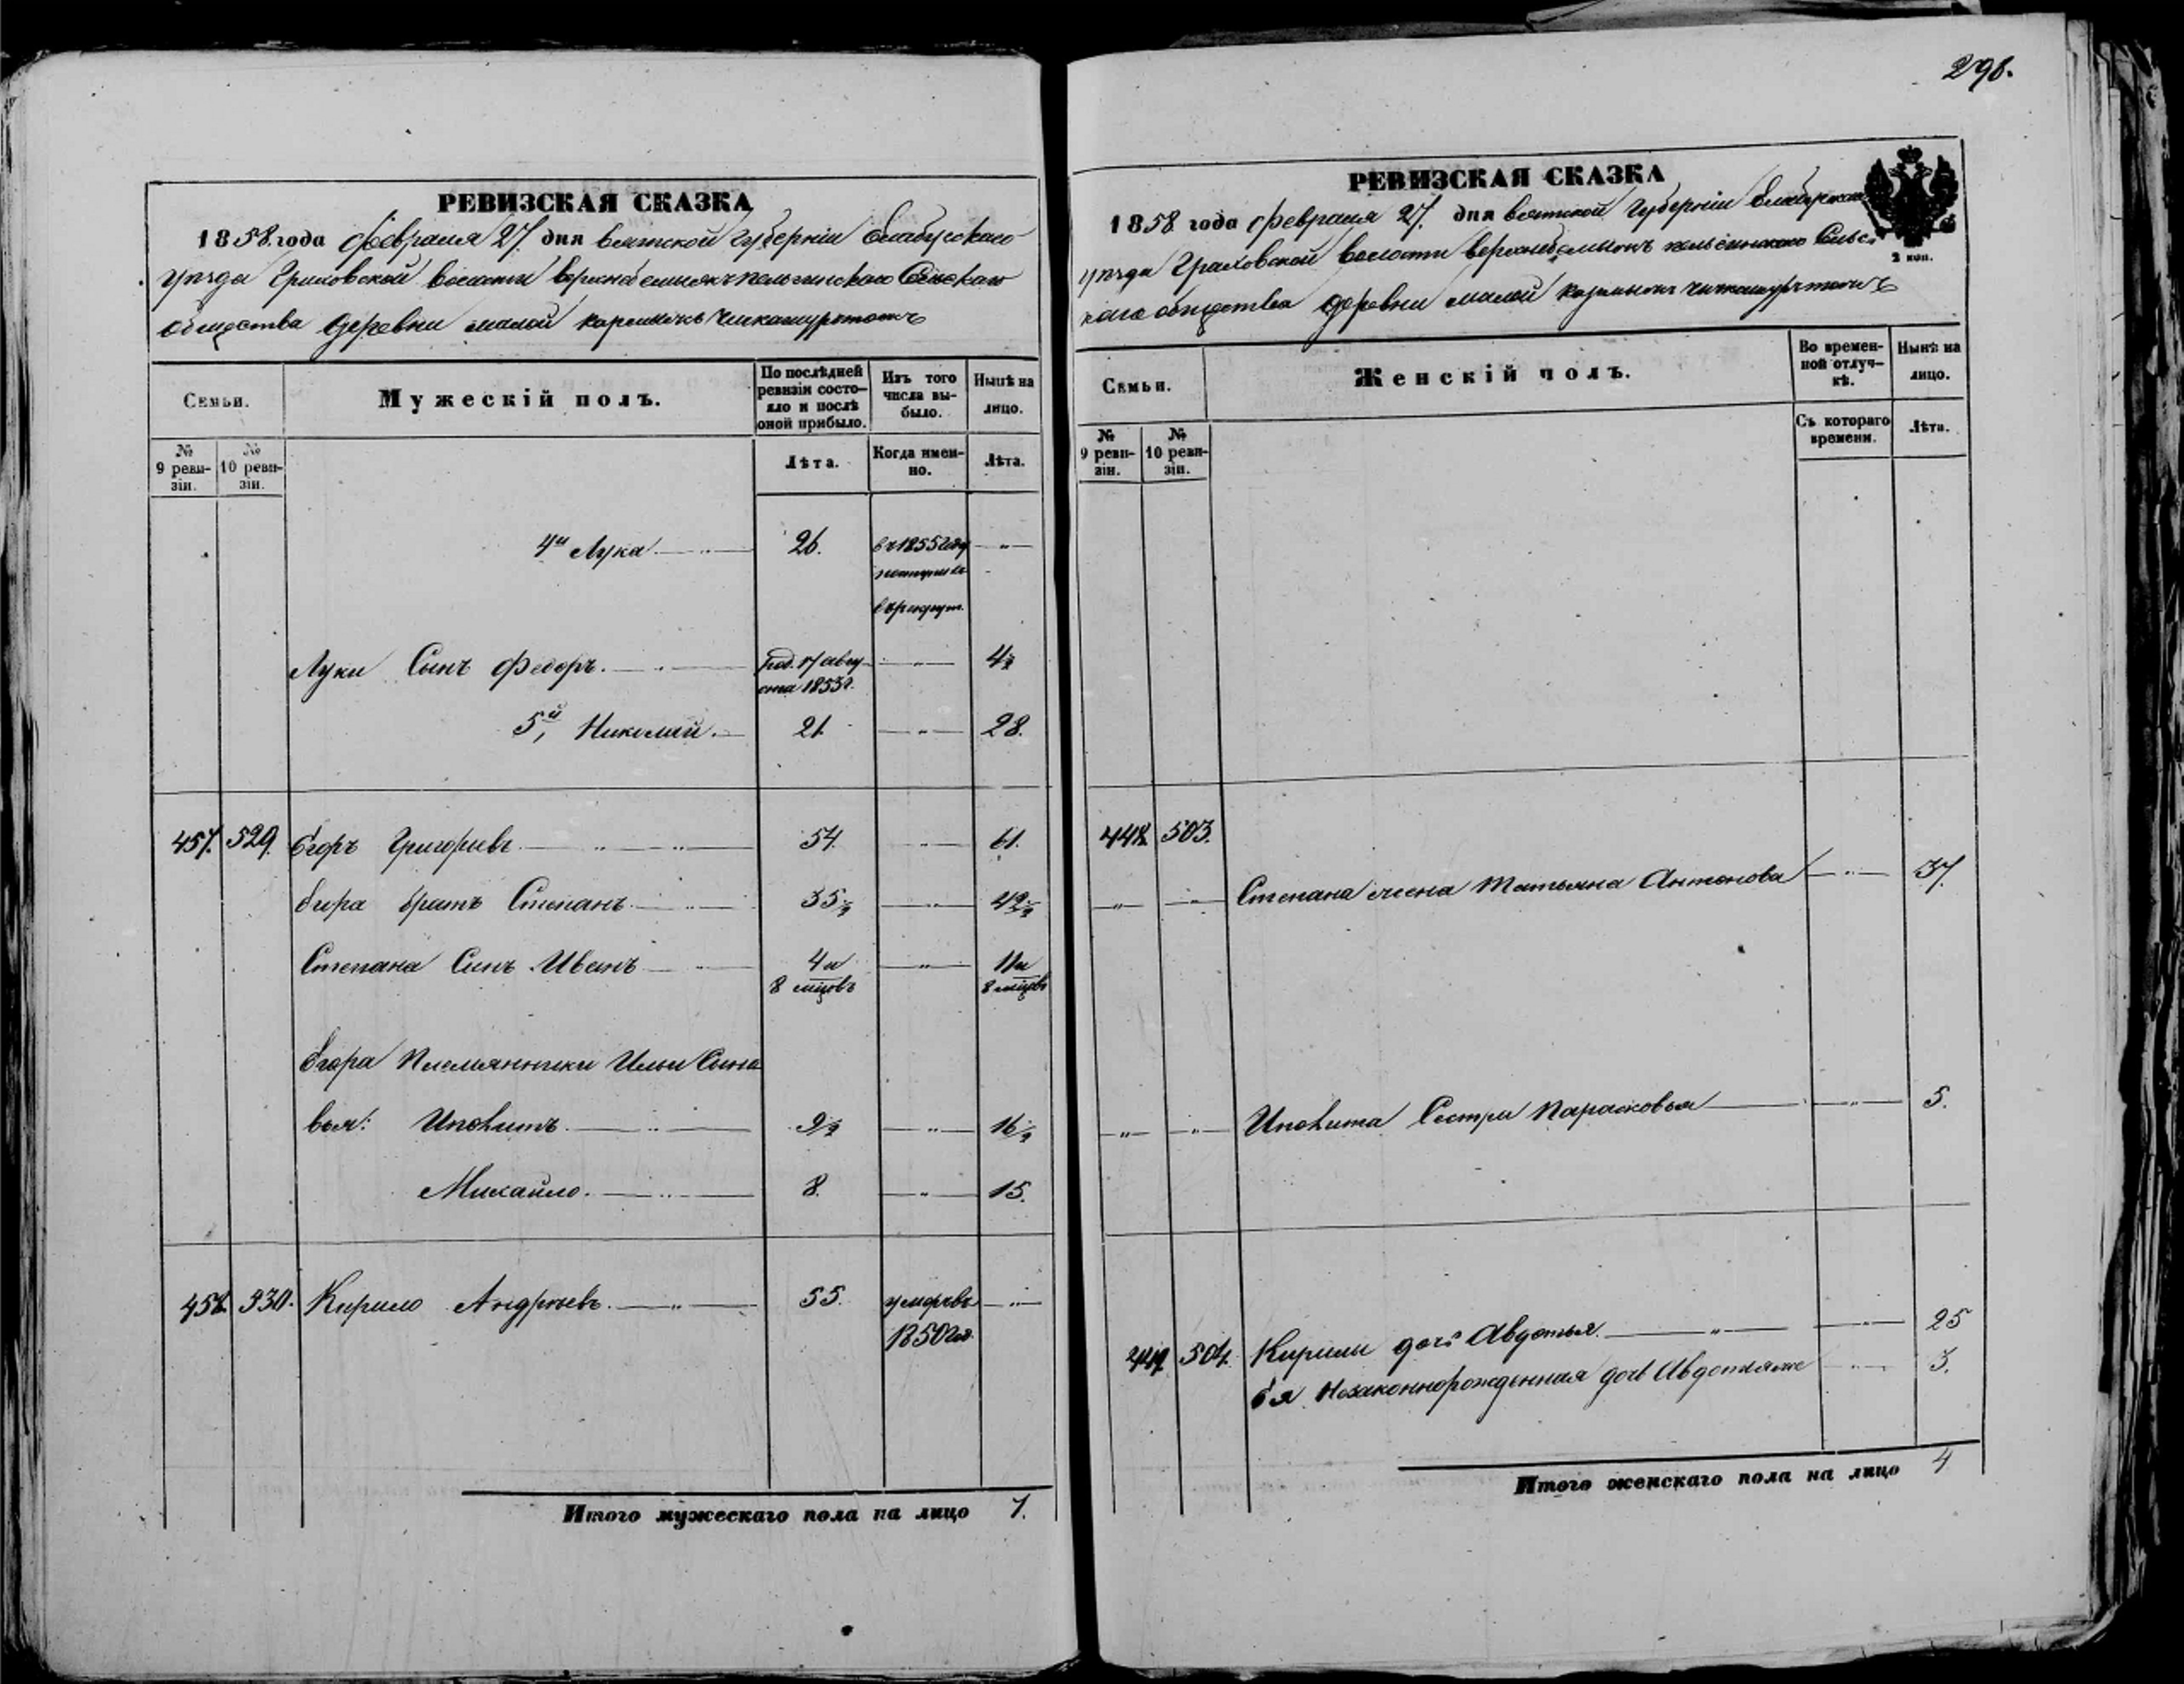 298.
РЕВИЗСКАЯ СКАЗКА
1858. года февраля 27. дня вятской губерніи Елабугскаго
уѣзда Граховской волости Сельскаго
общества деревни малой
Семьи.
Мужескій полъ.
По послѣдней ревизіи состо-яло и послѣ оной прибыло.
Изъ того числа вы-было.
Нынѣ на лицо.
№ 9 реви-зіи.
№ 10 реви-зіи.
Лѣта.
Когда имен-но.
Лѣта.
4й Лука 26. въ 1855 году — " —
поступилъ
въ рекрут.
Луки Сынъ Федоръ. род. 17 авгу- — " — 4½
ста 1853г.
5й, Николай. 21. — " — 28.
457. 529. Егоръ Григорьевъ 54. — " — 61.
Егора братъ Степанъ 35½ — " — 42½
Степана Сынъ Иванъ 4 и — " — 11 и
8 мѣцовъ 8 мѣцевъ
Егора Племянники Ильи Сыно
вья: Иполитъ 9½ — " — 16½
Михайло. 8. — " — 15.
458. 530. Кирило Андреевъ. 55. умеръ въ — " —
1850 год.
Итого мужескаго пола на лицо 7.
РЕВИЗСКАЯ СКАЗКА
1858 года февраля 27. дня вятской губерніи Елабугскаго
уѣзда Граховской волости Сельс
каго общества деревни малой
2 коп.
Семьи.
Женскій полъ.
Во времен-ной отлуч-кѣ.
Нынѣ на лицо.
№ 9 реви-зіи.
№ 10 реви-зіи.
Съ котораго времени.
Лѣта.
448. 503.
— " — — " — Степана жена Татьяна Антонова — " — 37.
— " — — " — Иполита Сестра Парасковья — " — 5.
449. 504. Кирилы дочь Авдотья. — " — 25
Ея Незаконнорожденная дочь Авдотья же — " — 3.
Итого женскаго пола на лицо 4